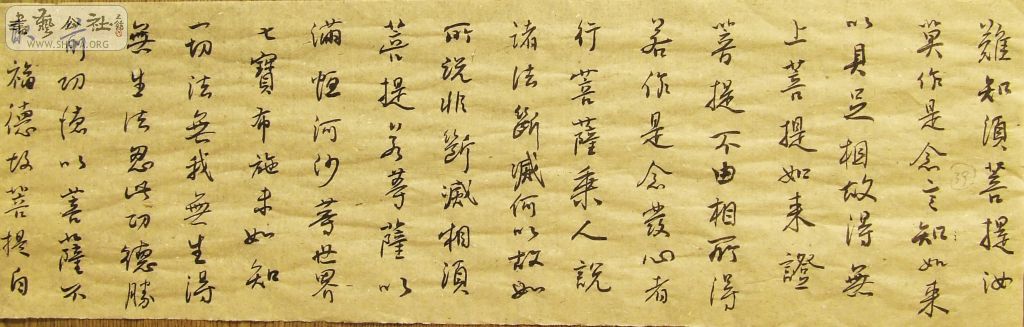 書藝公社
WWW.SHUFA.ORG
難知須菩提汝
莫作是念言知如来
35
以具足相故得無
上菩提如来證
菩提不由相所得
若作是念發心者
行菩薩乘人說
諸法斷滅何以故如
所說非斷滅相須
菩提若菩薩以
滿恒河沙等世界
七寶布施未如知
一切法無我無生得
無生法忍此功德勝
前功德以菩薩不
福德故菩提白